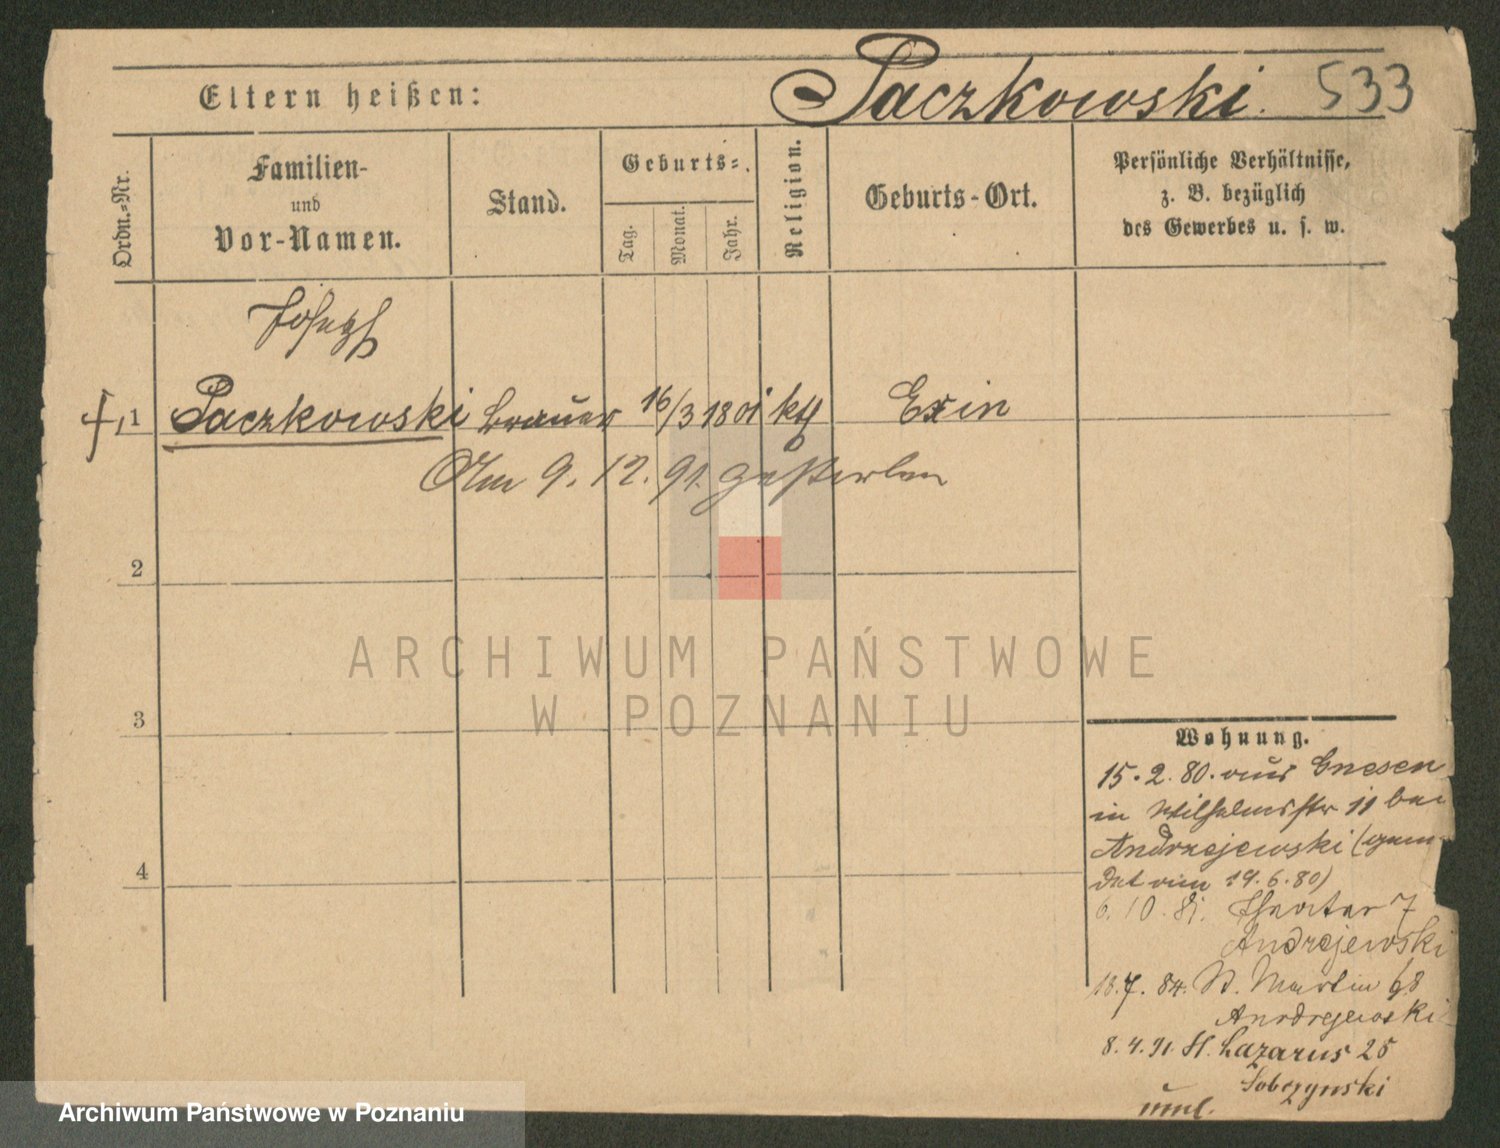 Eltern heißen: Paczkowski. 533
Ordn.-Nr.
Familien-
und
Vor-Namen.
Stand.
Geburts-
Tag.
Monat.
Jahr.
Religion.
Geburts-Ort.
Persönliche Verhältnisse,
z. B. bezüglich
des Gewerbes u. s. w.
Joseph
1 Paczkowski Brauer 16/3 1801 kth Exin
Am 9. 12. 91. gestorben
2
3
4
ARCHIWUM PAŃSTWOWE
W POZNANIU
Wohnung.
15. 2. 80. aus Gnesen
in Wilhelmsstr 11 bei
Andrzejewski (gem-
det am 19. 6. 80)
6. 10. 81. Theater 7
Andrzejewski
18. 7. 84. St. Martin 68
Andrzejewski
8. 4. 91. St. Lazarus 25
Sobczynski
Archiwum Państwowe w Poznaniu